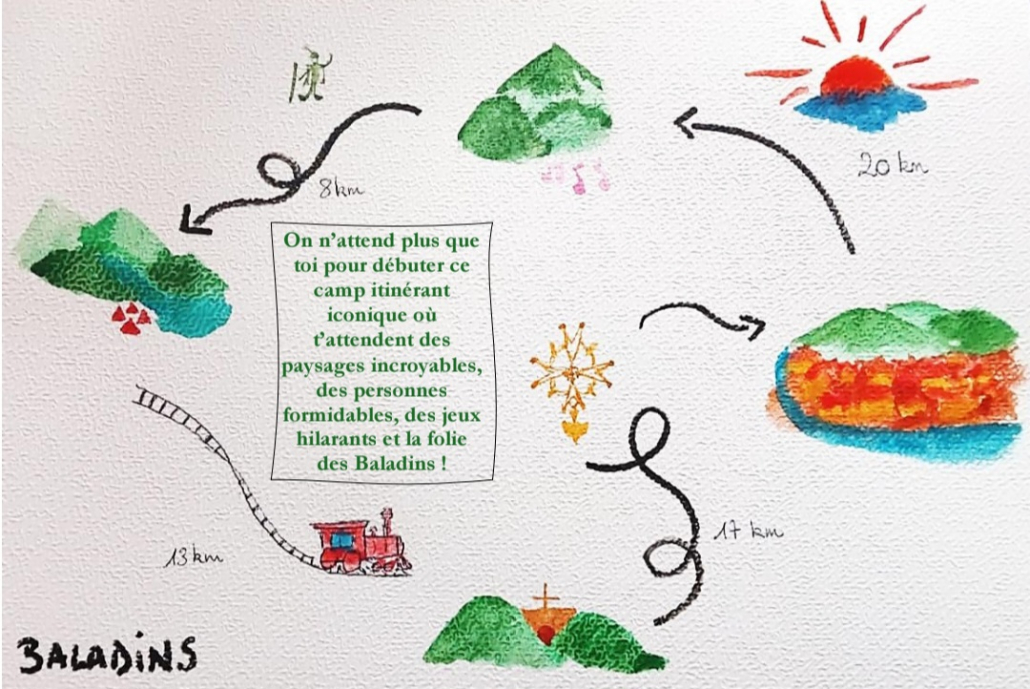 20 km
8km
On n'attend plus que
toi pour débuter ce
camp itinérant
iconique où
t'attendent des
paysages incroyables,
des personnes
formidables, des jeux
hilarants et la folie
des Baladins !
17 km
13 km
BALADiNS